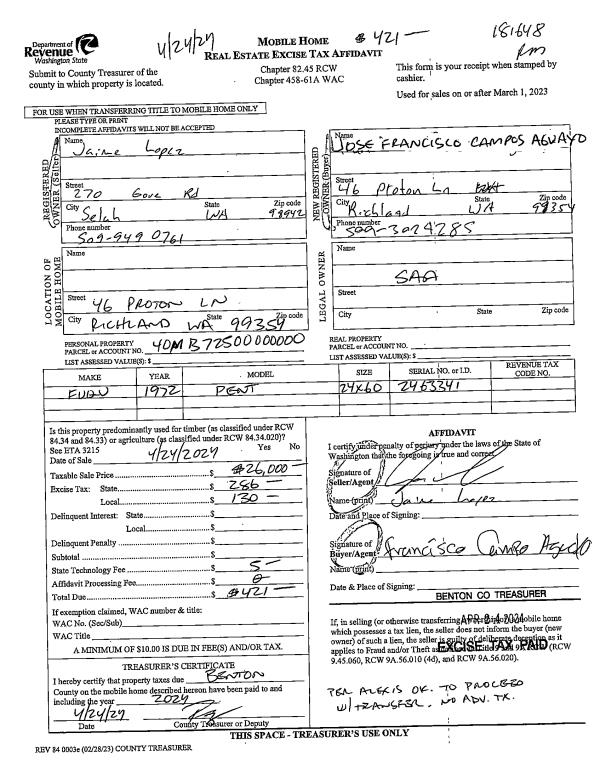 4/24/24
MOBILE HOME
$421 —
181648
Department of
Revenue
Washington State
REAL ESTATE EXCISE TAX AFFIDAVIT
Submit to County Treasurer of the
county in which property is located.
Chapter 82.45 RCW
Chapter 458-61A WAC
This form is your receipt when stamped by
cashier.
Used for sales on or after March 1, 2023
FOR USE WHEN TRANSFERRING TITLE TO MOBILE HOME ONLY
PLEASE TYPE OR PRINT
INCOMPLETE AFFIDAVITS WILL NOT BE ACCEPTED
REGISTERED
OWNER (Seller)
Name
Jaime Lopez
Street
270 Gove Rd
City State Zip code
Selah WA 98942
Phone number
509-949 0761
NEW REGISTERED
OWNER (Buyer)
Name
JOSE FRANCISCO CAMPOS AGUAYO
Street
46 Proton Ln
City State Zip code
Richland WA 99354
Phone number
509-3024285
LOCATION OF
MOBILE HOME
Name
Street
46 PROTON LN
City State Zip code
RICHLAND WA 99354
LEGAL OWNER
Name
SAA
Street
City State Zip code
PERSONAL PROPERTY
PARCEL or ACCOUNT NO. 40MB72500000000
LIST ASSESSED VALUE(S): $
REAL PROPERTY
PARCEL or ACCOUNT NO.
LIST ASSESSED VALUE(S): $
MAKE YEAR MODEL SIZE SERIAL NO. or I.D. REVENUE TAX CODE NO.
1972 PENT 24X60 2463341
Is this property predominantly used for timber (as classified under RCW
84.34 and 84.33) or agriculture (as classified under RCW 84.34.020)?
See ETA 3215 Yes No
Date of Sale 4/24/2024
Taxable Sale Price $ $26,000 —
Excise Tax: State $ 286 —
Local $ 130 —
Delinquent Interest: State $
Local $
Delinquent Penalty $
Subtotal $
State Technology Fee $ 5 —
Affidavit Processing Fee $ 0
Total Due $ $421 —
If exemption claimed, WAC number & title:
WAC No. (Sec/Sub)
WAC Title
A MINIMUM OF $10.00 IS DUE IN FEE(S) AND/OR TAX.
TREASURER'S CERTIFICATE
I hereby certify that property taxes due BENTON
County on the mobile home described hereon have been paid to and
including the year 2024
4/24/24
Date County Treasurer or Deputy
AFFIDAVIT
I certify under penalty of perjury under the laws of the State of
Washington that the foregoing is true and correct.
Signature of
Seller/Agent
Name (print) Jaime Lopez
Date and Place of Signing:
Signature of
Buyer/Agent Francisco Campo Agudo
Name (print)
Date & Place of Signing:
BENTON CO TREASURER
If, in selling (or otherwise transferring mobile home
APR 24 2024
which possesses a tax lien, the seller does not inform the buyer (new
owner) of such a lien, the seller is guilty of deliberate deception as it
applies to Fraud and/or Theft (RCW
EXCISE TAX PAID
9.45.060, RCW 9A.56.010 (4d), and RCW 9A.56.020).
PER ALEXIS OK. TO PROCEED
W/ TRANSFER. NO ADV. TX.
THIS SPACE - TREASURER'S USE ONLY
REV 84 0003e (02/28/23) COUNTY TREASURER